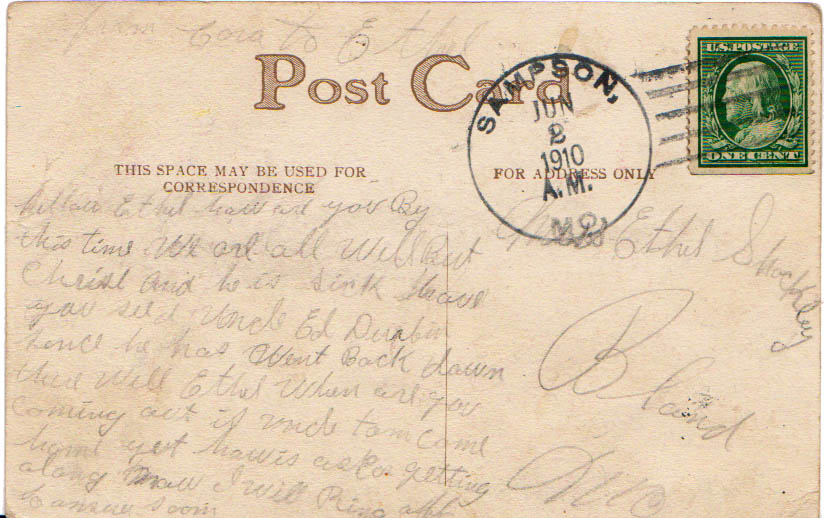 from Cora to Ethel
Post Card
U.S. POSTAGE
ONE CENT
SAMPSON,
JUN
2
1910
A.M.
MO.
THIS SPACE MAY BE USED FOR
CORRESPONDENCE
FOR ADDRESS ONLY
hellow Ethel how are you By
this time We are all Well But
and he is sick have
you seed Uncle Ed Durbin
sence he has Went Back down
thare Well Ethel When are you
coming out is uncle tom come
home yet how is getting
along now I Will Ring off
answer soon
Miss Ethel Shockley
Bland
Mo